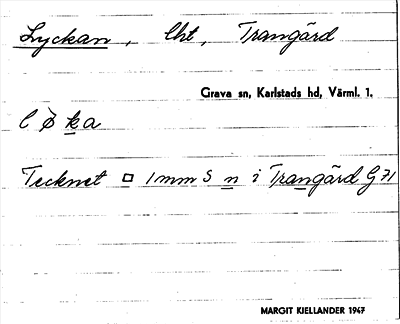 Lyckan, lht, Trangärd
Grava sn, Karlstads hd, Värml. l.
l ø̀ k a
Tecknet □ 1 mm S n i Trangärd G 71
MARGIT KJELLANDER 1947